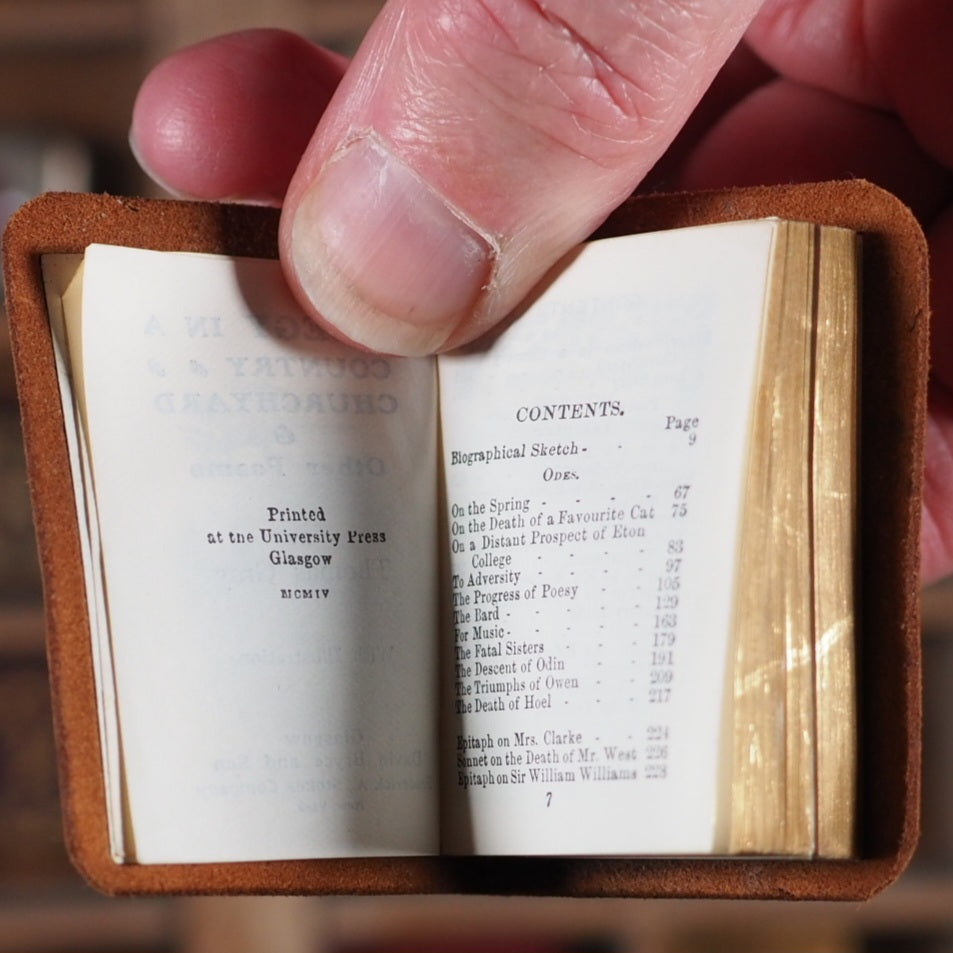 Printed
at the University Press
Glasgow
MCMIV
CONTENTS.
Page
Biographical Sketch - - 9
ODES.
On the Spring - - - - 67
On the Death of a Favourite Cat 75
On a Distant Prospect of Eton
College - - - - 83
To Adversity - - - - 97
The Progress of Poesy - - 105
The Bard - - - - - 129
For Music - - - - - 163
The Fatal Sisters - - - 179
The Descent of Odin - - 191
The Triumphs of Owen - - 209
The Death of Hoel - - - 217
Epitaph on Mrs. Clarke - - 224
Sonnet on the Death of Mr. West 226
Epitaph on Sir William Williams 228
7